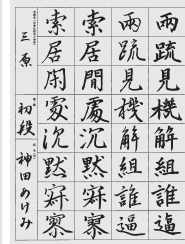 兩疏見機解組誰逼
兩疏見機解組誰逼
索居閒處沉默寂寥
索居閑處沈默寂寥
三原
初段
神田あけみ